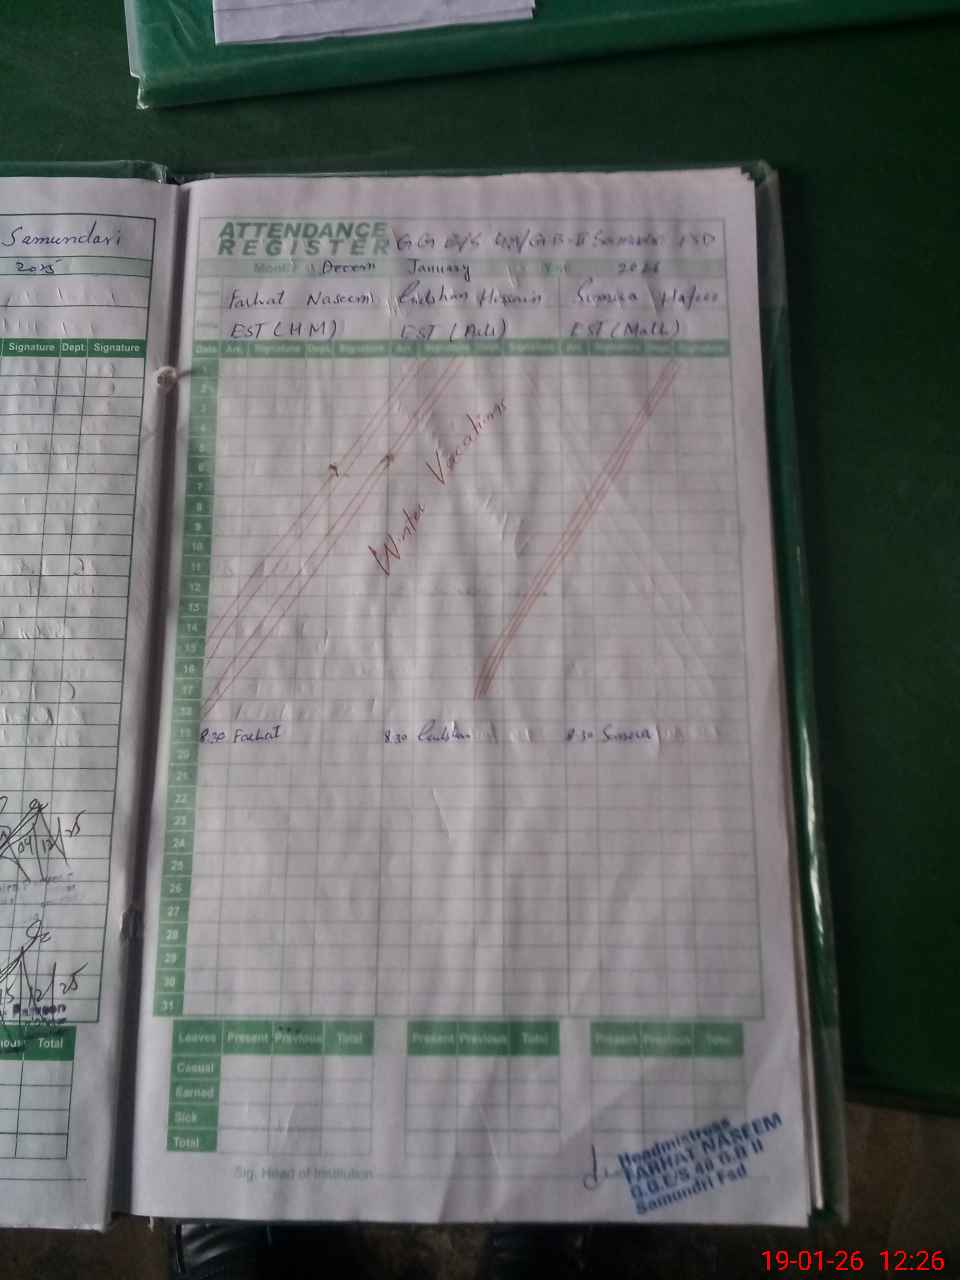 Samundari
2025
Signature Dept. Signature
04 12 25
15 12 25
Total
ATTENDANCE
REGISTER
Month January Year 2026
Farhat Naseem
EST (HM) EST (Arts) EST (Math)
Date Arr. Signature Dept. Signature
1
2
3
4
5
6
7
8
9
10
11
12
13
14
15
16
17
18
Winter Vacations
19 8:30 Farhat 8:30 8:30
20
21
22
23
24
25
26
27
28
29
30
31
Leaves Present Previous Total Present Previous Total Present Previous Total
Casual
Earned
Sick
Total
Sig. Head of Institution
Headmistress
FARHAT NASEEM
G.G.E/S 48 G.B II
Samundri Fsd
19-01-26 12:26